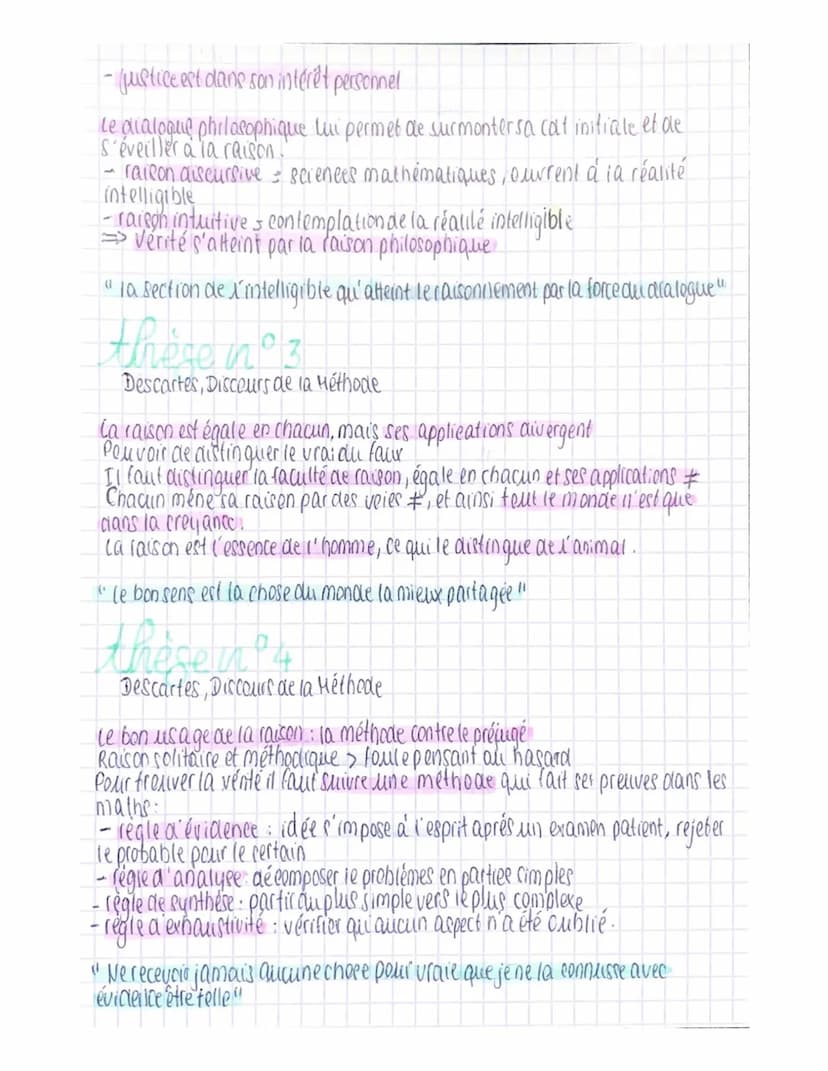 - justice est dans son intérêt personnel
Le dialogue philosophique lui permet de surmonter sa cat initiale et de
s'éveiller à la raison.
- raison discursive = sciences mathématiques, ouvrent à la réalité
intelligible
- raison intuitive = contemplation de la réalité intelligible
=> Vérité s'atteint par la raison philosophique
"la section de l'intelligible qu'atteint le raisonnement par la force du dialogue"
thèse n°3
Descartes, Discours de la Méthode
La raison est égale en chacun, mais ses applications divergent
Pouvoir de distinguer le vrai du faux
Il faut distinguer la faculté de raison, égale en chacun et ses applications ≠
Chacun mène sa raison par des voies ≠, et ainsi tout le monde n'est que
dans la croyance.
La raison est l'essence de l'homme, ce qui le distingue de l'animal.
"Le bon sens est la chose du monde la mieux partagée"
thèse n°4
Descartes, Discours de la Méthode
Le bon usage de la raison : la méthode contre le préjugé
Raison solitaire et méthodique > foule pensant au hasard
Pour trouver la vérité il faut suivre une méthode qui fait ses preuves dans les
maths :
- règle d'évidence : idée s'impose à l'esprit après un examen patient, rejeter
le probable pour le certain
- règle d'analyse : décomposer le problèmes en parties simples
- règle de synthèse : partir du plus simple vers le plus complexe
- règle d'exhaustivité : vérifier qu'aucun aspect n'a été oublié.
"Ne recevoir jamais aucune chose pour vraie que je ne la connusse avec
évidence être telle"